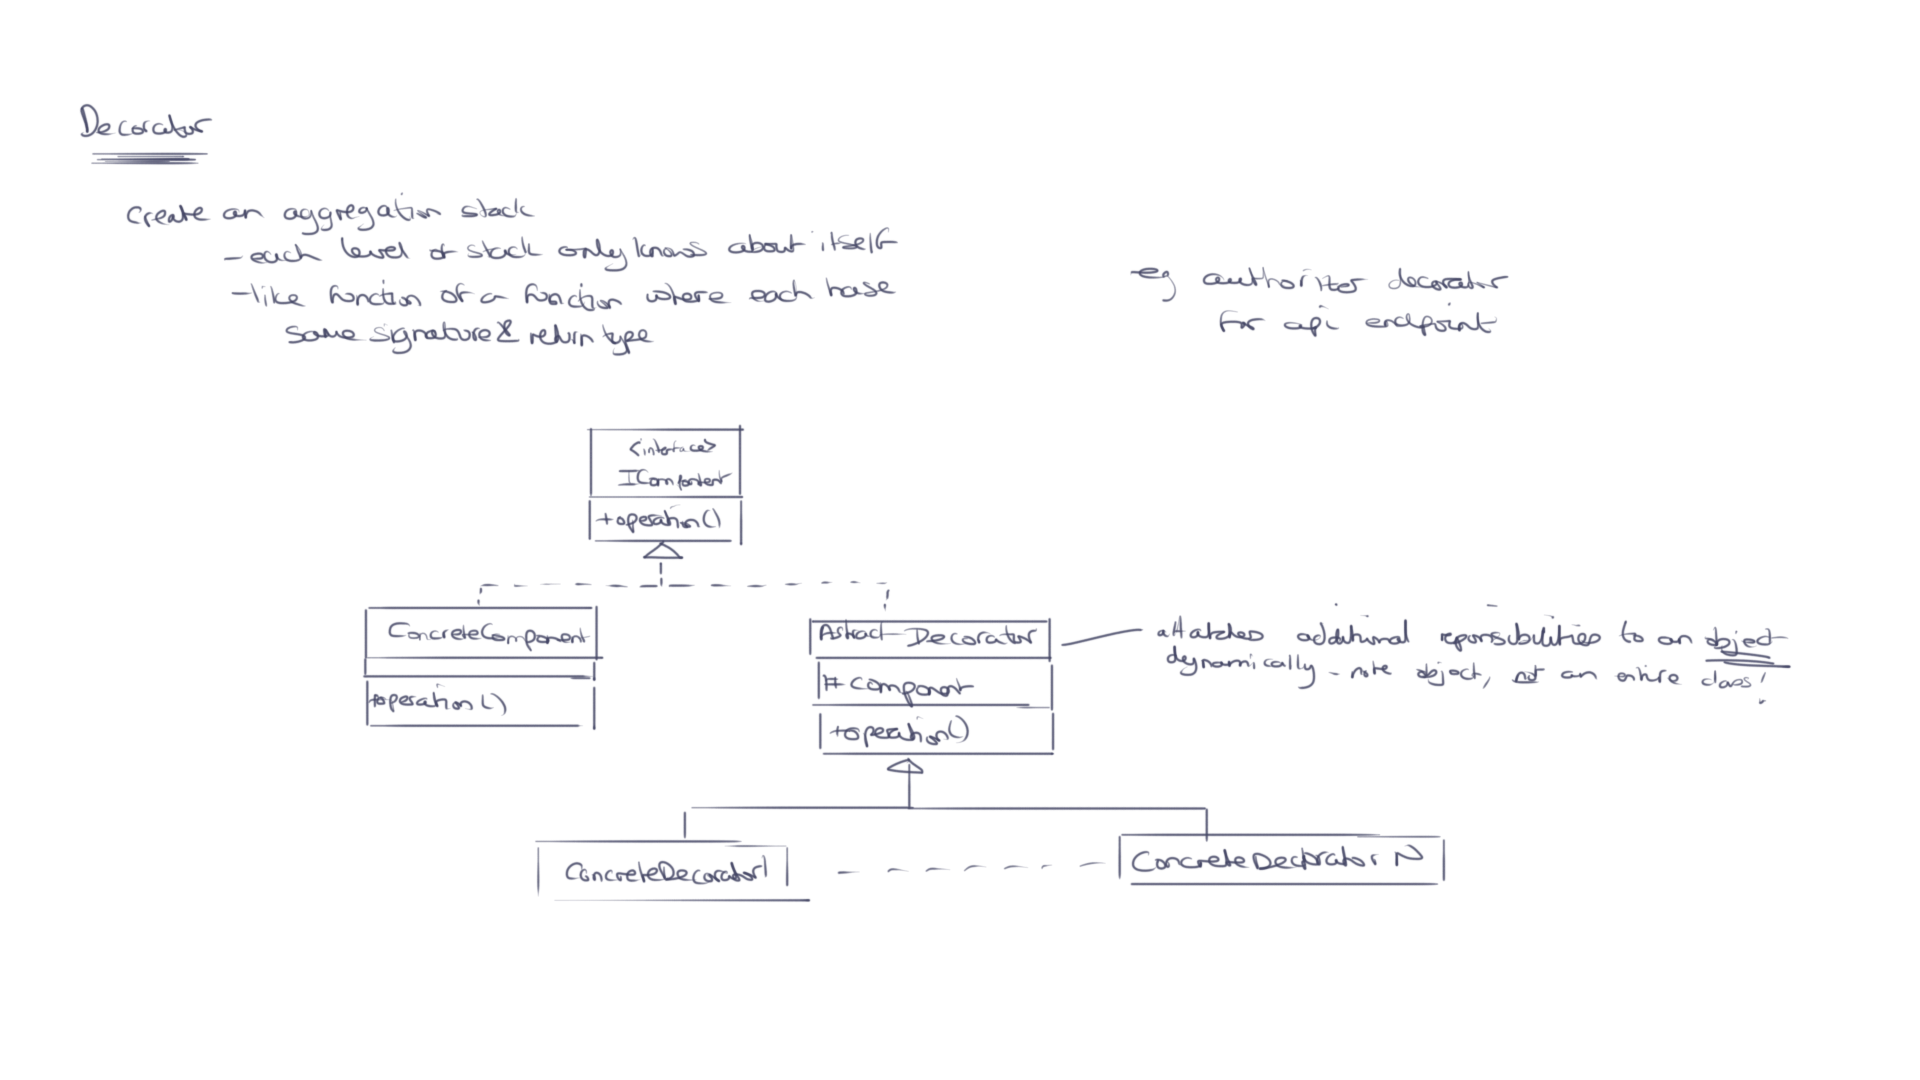 Decorator
Create an aggregation stack
- each level of stack only knows about itself
- like function of a function where each hase
same signature & return type
eg authorizer decorator
for api endpoint
<interface>
IComponent
+operation()
ConcreteComponent
+operation()
Astract Decorator
# component
+operation()
attatches additional reponsibilities to an object
dynamically - note object, not an entire class!
ConcreteDecorator1
ConcreteDecorator N